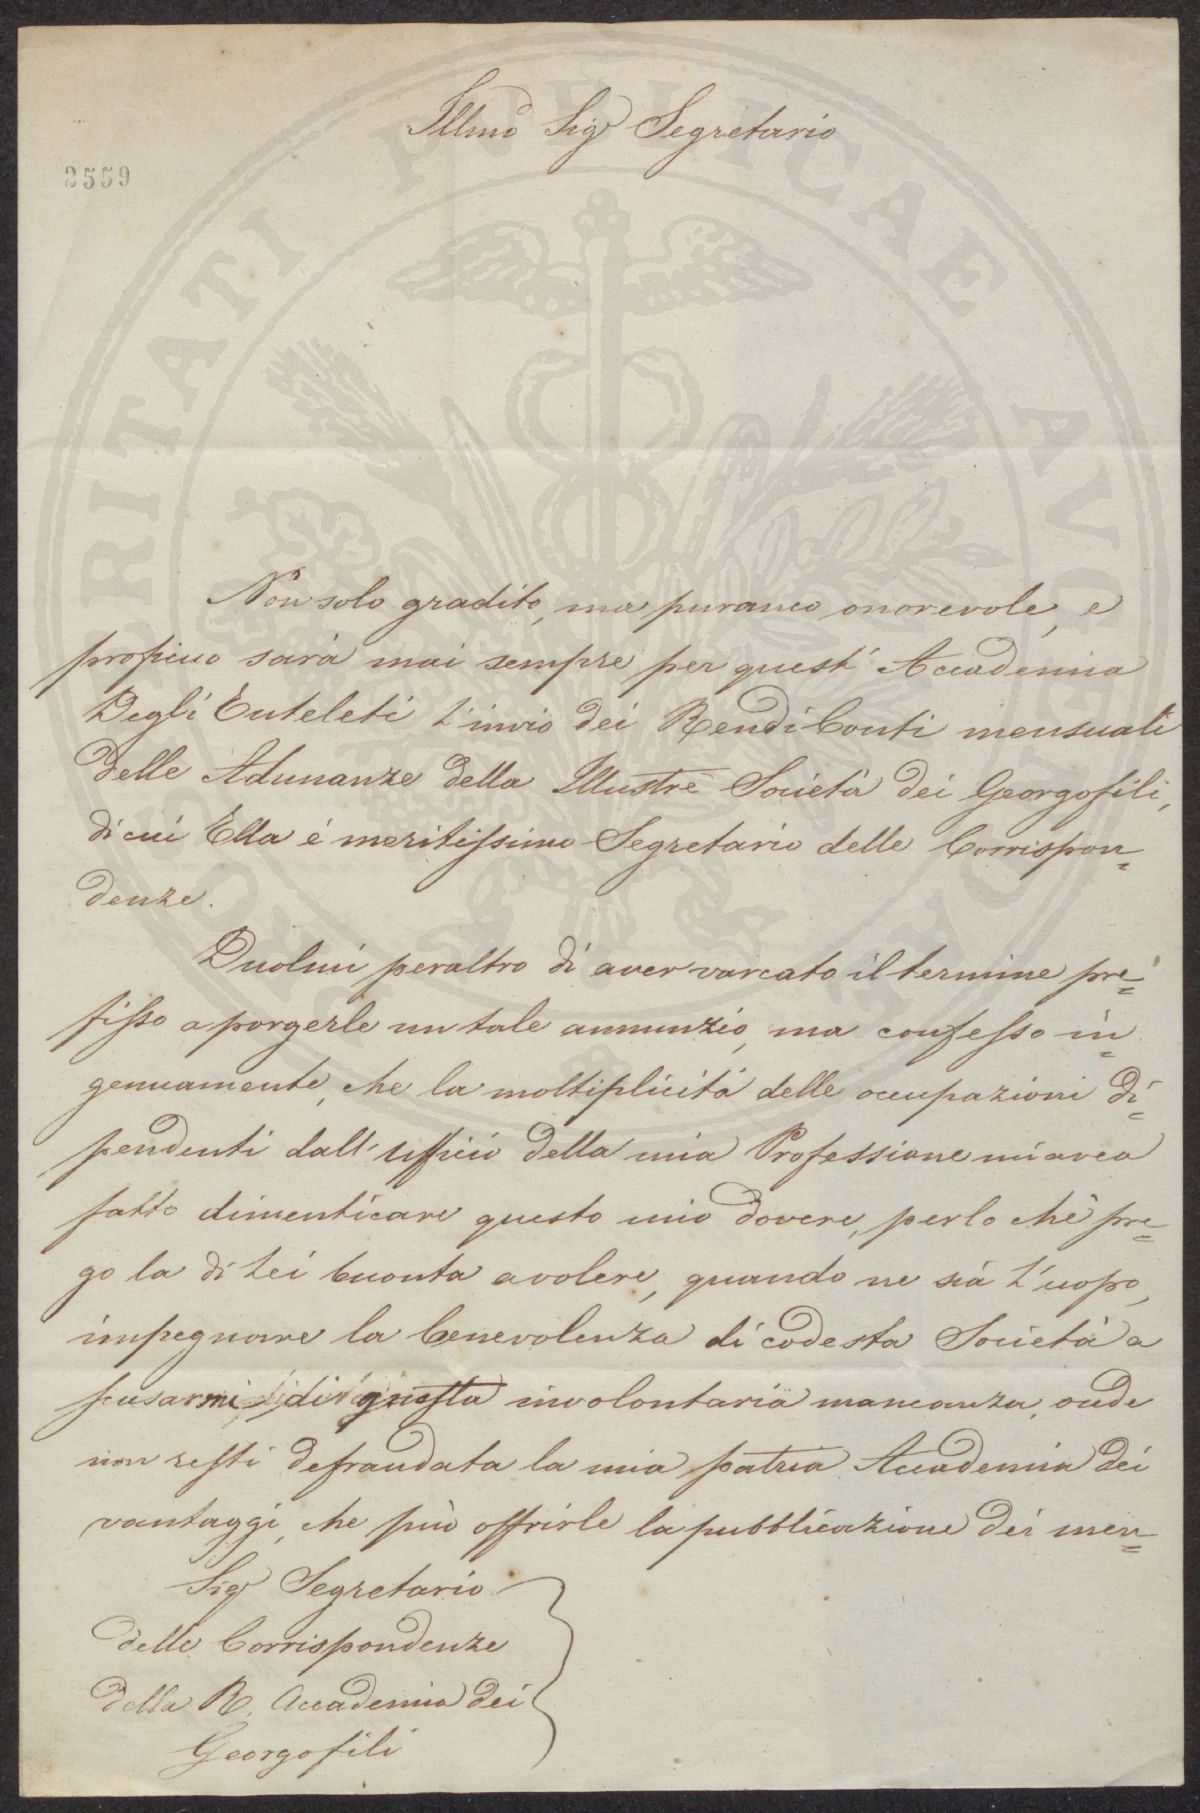 Illmo Sig.r Segretario
2559
Non solo gradito, ma puranco onorevole, e
proficuo sarà mai sempre per quest' Accademia
Degli Euteleti l'invio dei RendiConti mensuali
delle Adunanze della Illustre Società dei Georgofili,
di cui Ella è meritissimo Segretario delle Corrispon=
denze.
Duolmi peraltro di aver varcato il termine pre=
fisso a porgerle un tale annunzio, ma confesso in=
genuamente, che la moltiplicità delle occupazioni di=
pendenti dall' ufficio della mia Professione mi avea
fatto dimenticare questo mio dovere, perlo chè pre=
go la di Lei buonta a volere, quando ne sia l'uopo,
impegnare la benevolenza di codesta Società a
scusarmi di questa involontaria mancanza, onde
non resti defraudata la mia patria Accademia dei
vantaggi, che può offrirle la pubblicazione dei men=
Sig.r Segretario
delle Corrispondenze
della R. Accademia dei
Georgofili